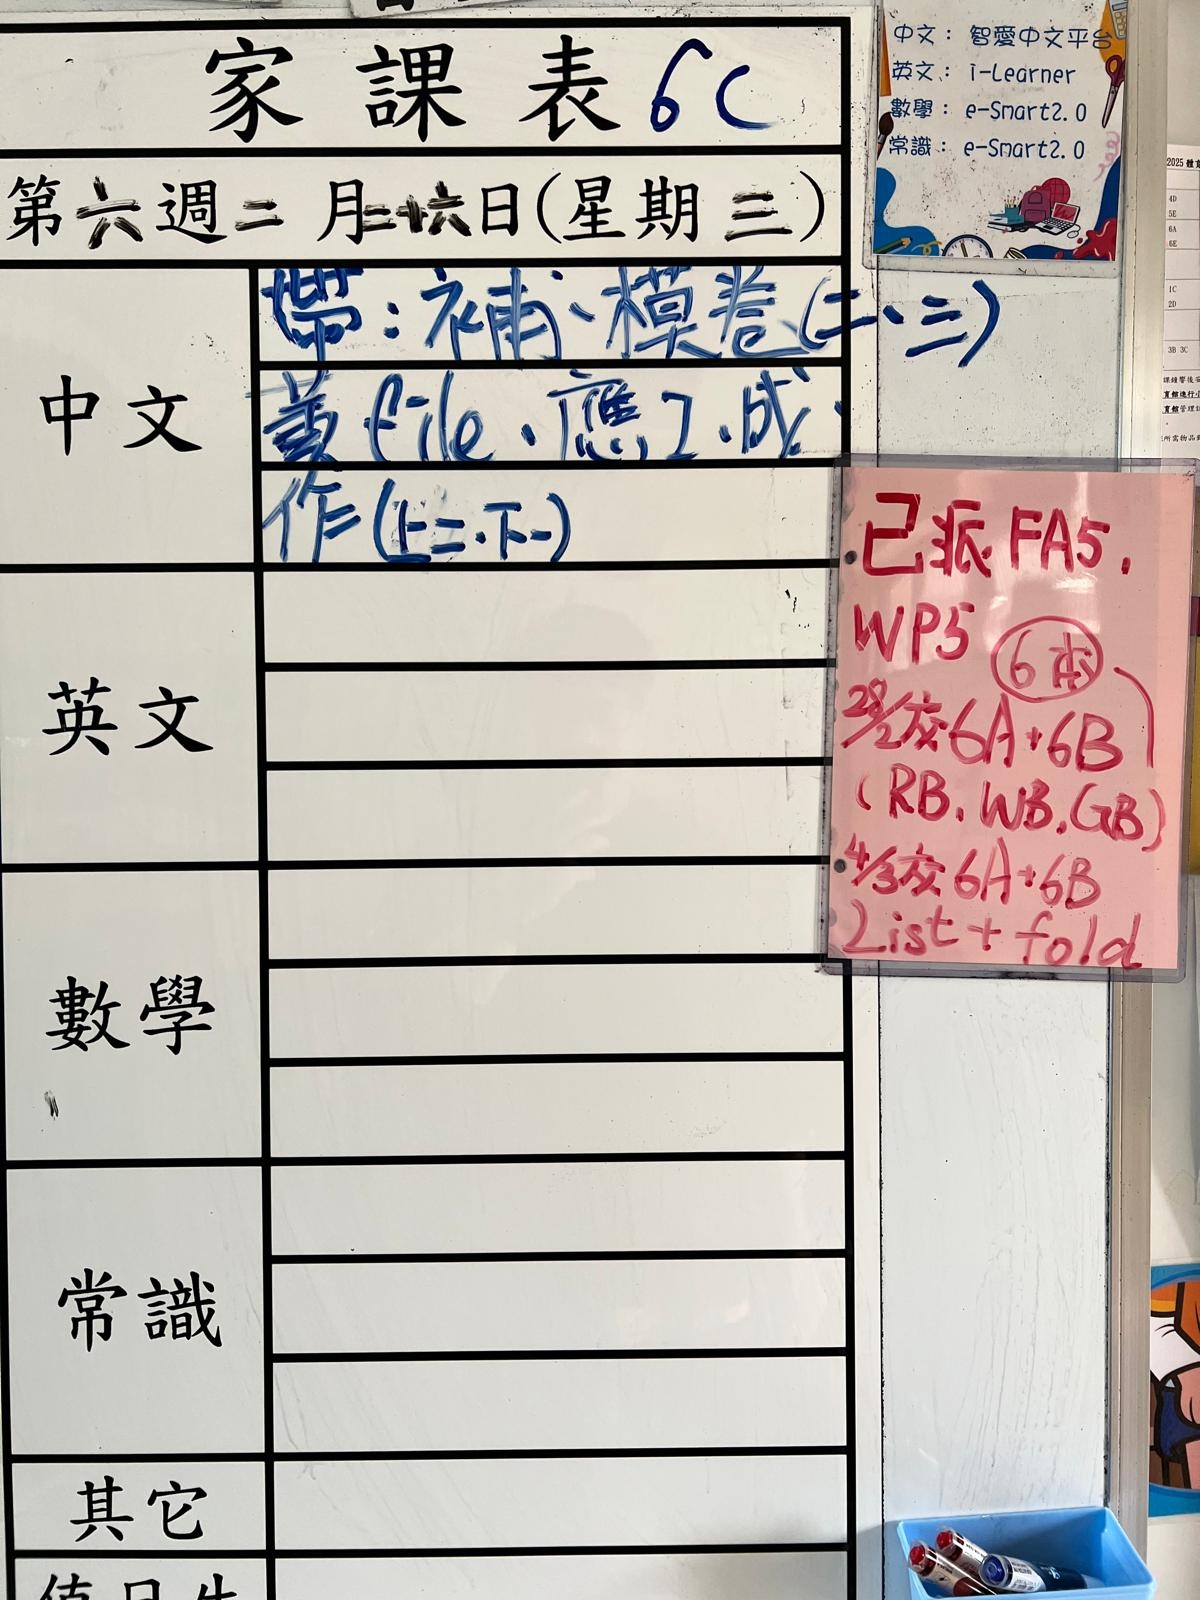 家課表 6C
第六週二月二十六日(星期三)
中文
帶：補、模卷(二、三)
黃file．應工．成．
作(上二．下一)
英文
數學
常識
其它
值日生
中文： 智愛中文平台
英文： i-Learner
數學： e-Smart2.0
常識： e-Smart2.0
已派FA5，
WP5 6本
28/2交6A+6B
(RB, WB, GB)
4/3交6A+6B
List + fold
2025
4D
5E
6A
6E
1C
2D
3B 3C